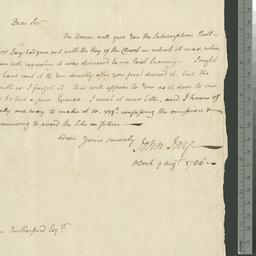 Dear Sir
The Bearer will give you the Subscription Roll—
Jay had gone out with the Key of the Closet in which it was, when
your note requesting it was delivered to me last Evening. I ought
have sent it to you directly after you first desired it, but the
truth is I forgot it. this will appear to you as it does to me
to be but a poor Excuse. I wish it was better, and I know of
only one way to make it so. vizt. confessing the omission &
promising to avoid the like in future—
I am Dear Sir Yours sincerely
John Jay
9 Augt. 1786
Rutherford Esqr.